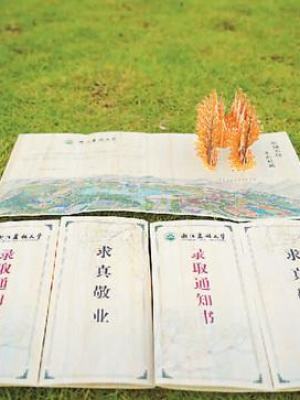 浙江农林大学
浙江农林大学
录取通
求真敬业
浙江农林大学
录取通知书
求真